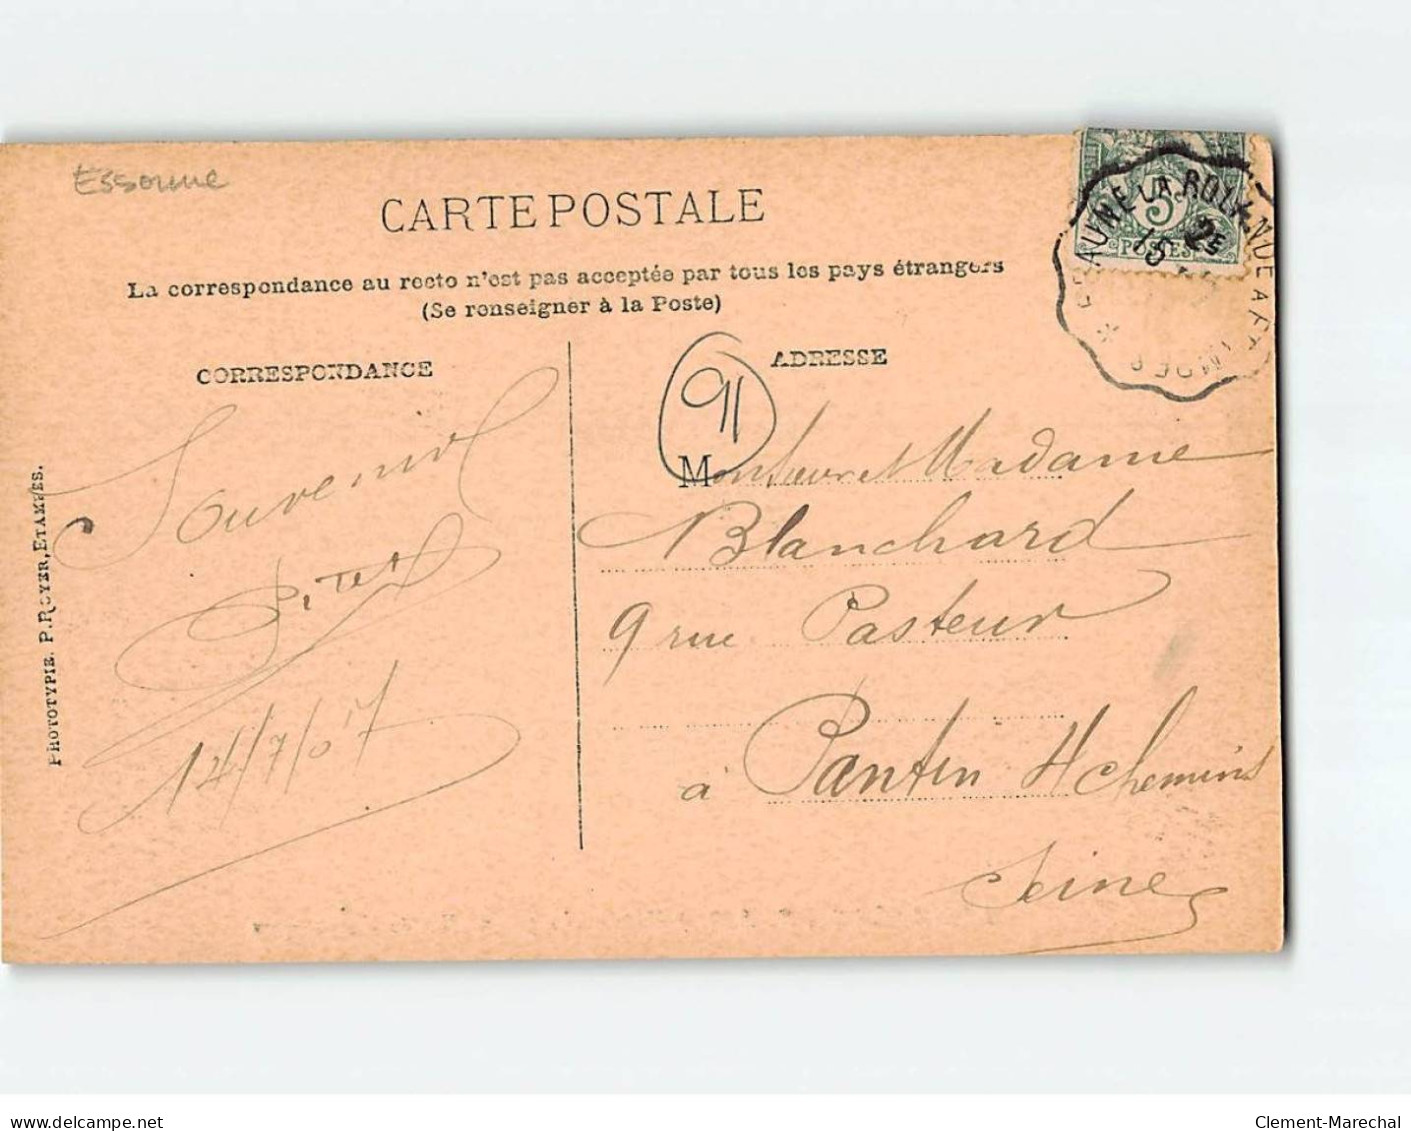 Essonne
CARTE POSTALE
La correspondance au recto n'est pas acceptée par tous les pays étrangers
(Se renseigner à la Poste)
CORRESPONDANCE
ADRESSE
91
Souvenir
14/7/07
Monsieur et Madame
Blanchard
9 rue Pasteur
à Pantin 4 chemins
Seine
PHOTOTYPIE. P. ROYER, ETAMPES.
BEAUNE-LA-ROLANDE A ETAMPES
2E
5c
POSTES
delcampe.net
Clement-Marechal